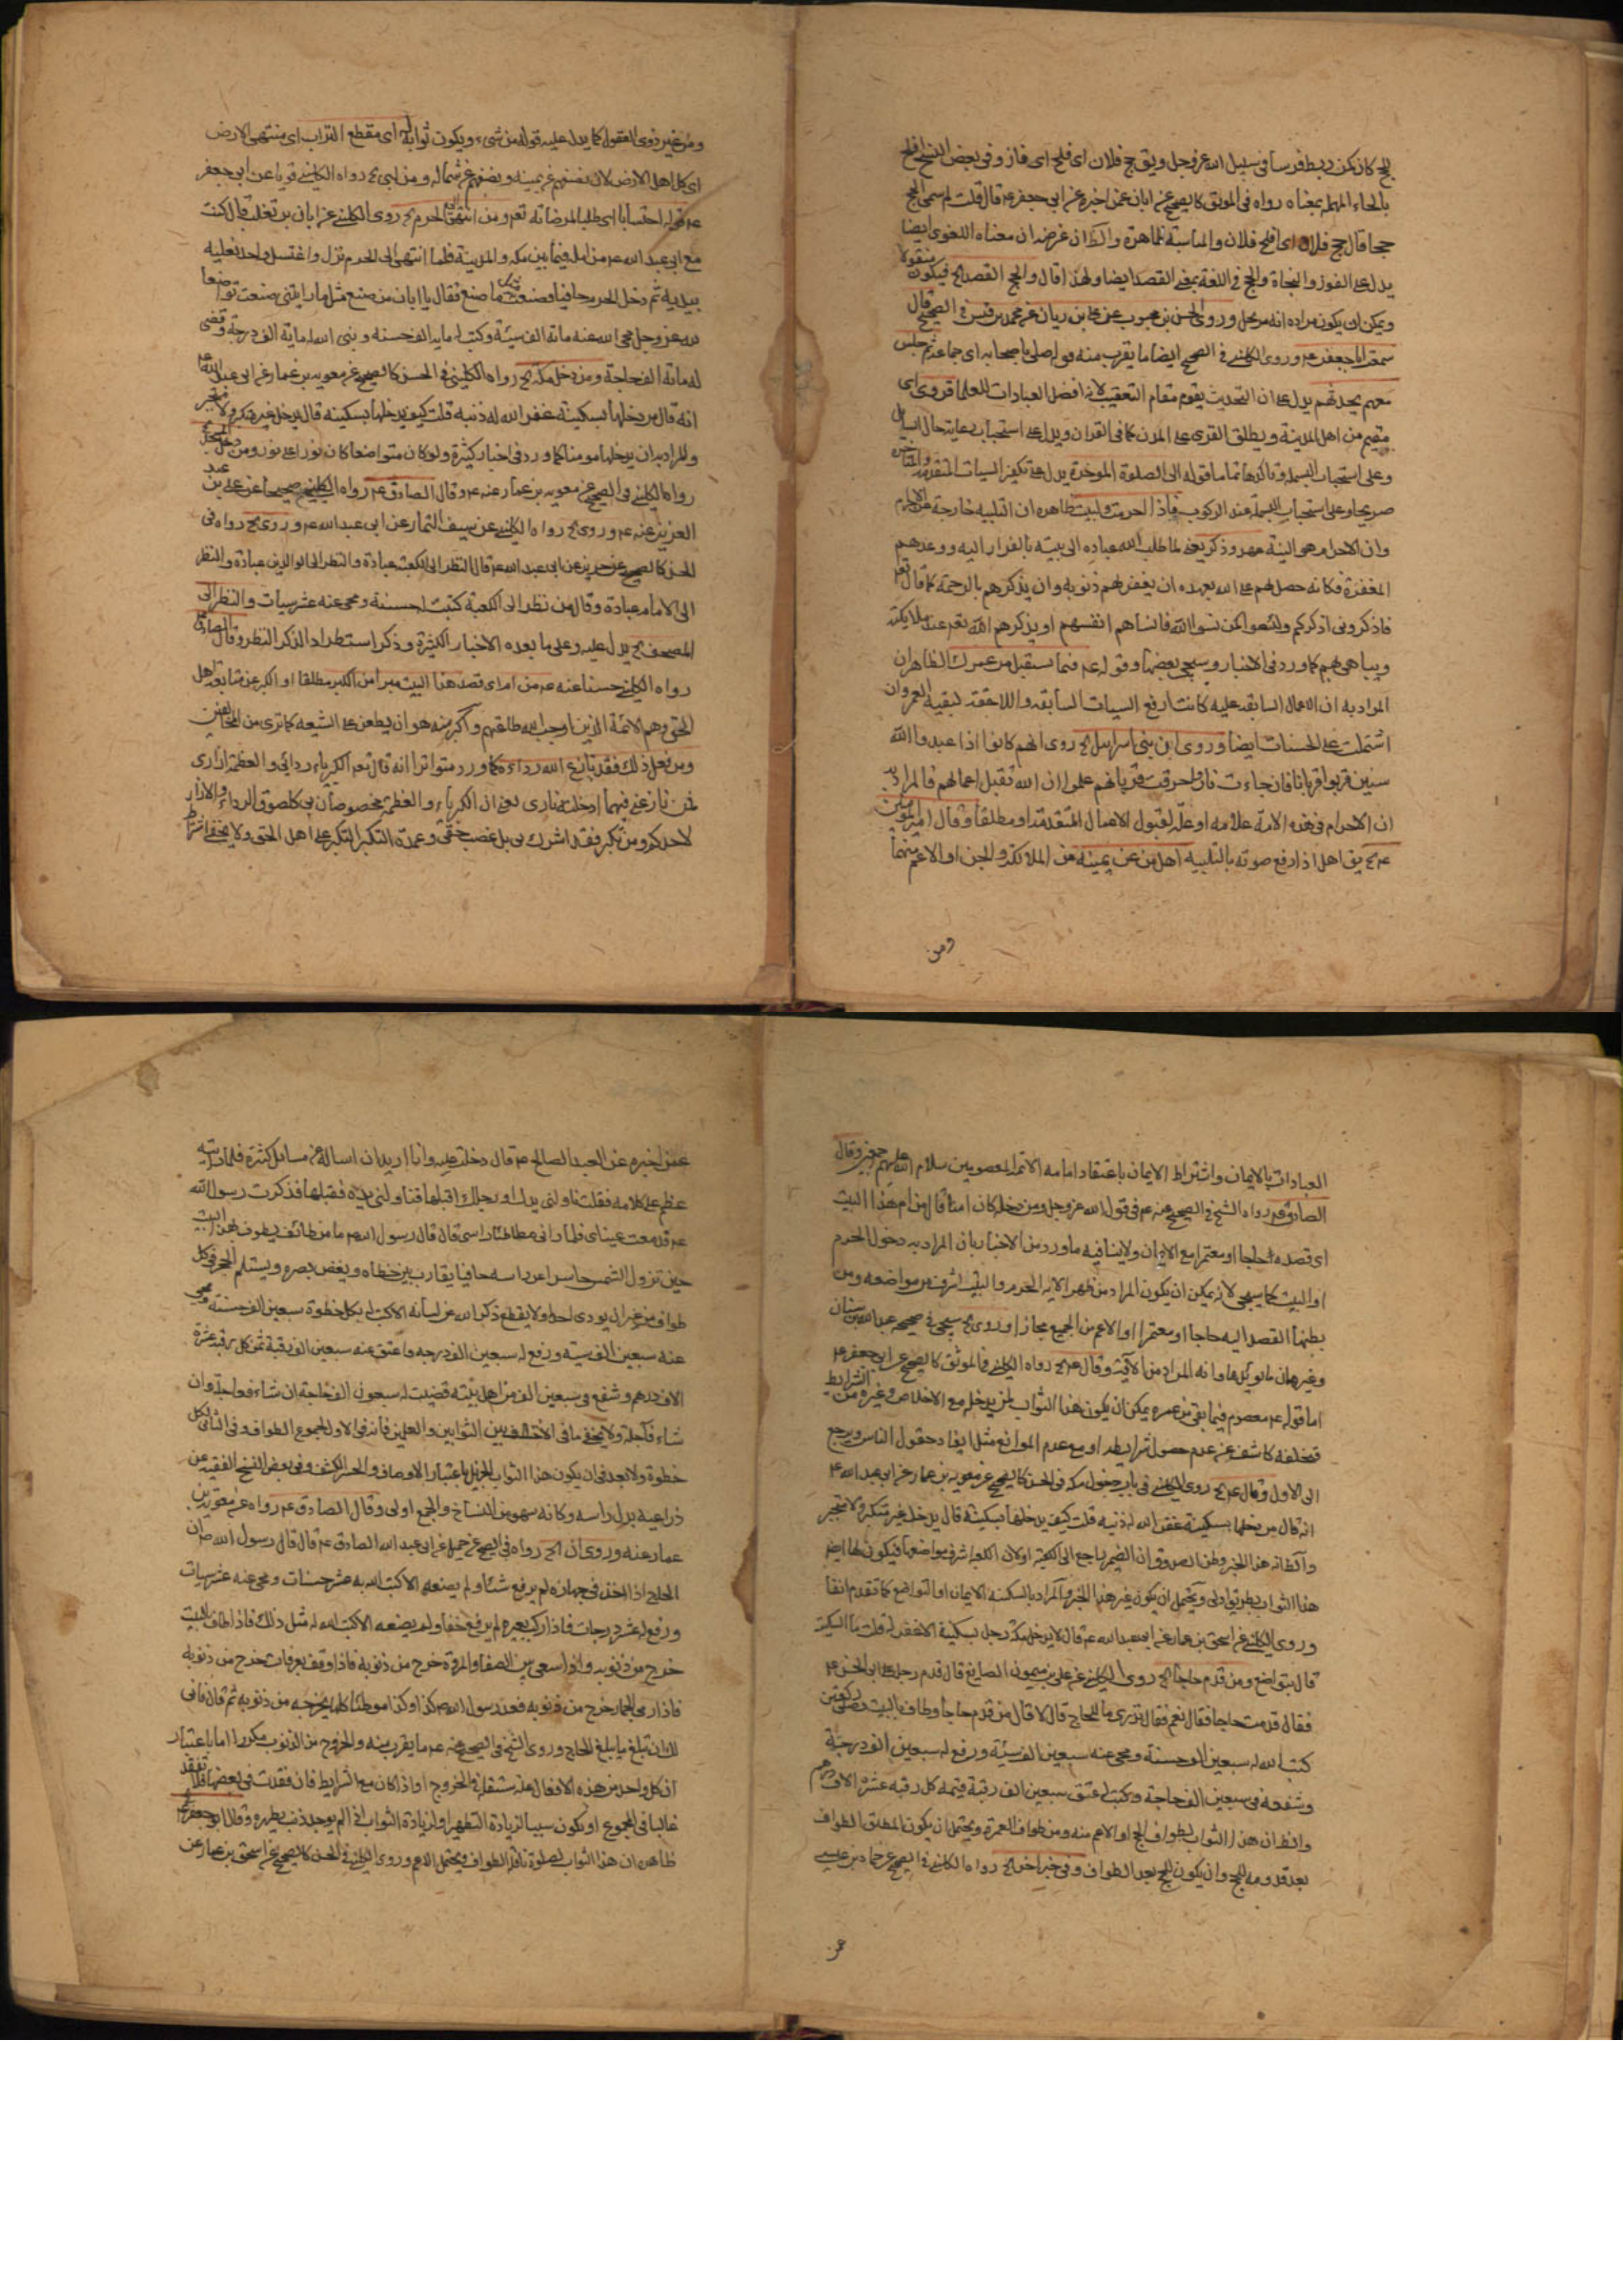 للحج كان كمن ربط فرسا في سبيل الله عز وجل ويق حج فلان اى فلح اى فاز وفي بعض النسخ افلح
بالحاء المهملة بمعناه رواه في الموثق كالصحيح عن ابان عمن اخبره عن ابي جعفر ع قال قلت لم سمى الحج
حجا قال حج فلان اى افلح فلان والمناسبة ظاهرة والظ ان غرضه ان معناه اللغوى ايضا
يدل على الفوز والنجاة والحج في اللغة بمعنى القصد ايضا ولهذا قال والحج القصد الخ فيكون منقولا
ويمكن ان يكون مراده انه مرتجل وروى الحسن بن محبوب عن على بن ريان عن محمد بن قيس في الصحيح قال
سمعت ابا جعفر ع وروى الكليني في الصحيح ايضا ما يقرب منه قوله صلى باصحابه اى جماعة ثم جلس
معهم يحدثهم يدل على ان التحديث يقوم مقام التعقيب لانه افضل العبادات للعلما قروى اى
مقيم من اهل المدينة ويطلق القرى على المدن كما في القران ويدل على استحباب رعاية حال السايل
وعلى استحباب البسملة وتاكدها تماما قوله الى الصلوة الموخرة يدل على تكفير السيات المتقدمة والمتاخرة
صريحا وعلى استحباب البسملة عند الركوب فاذا احرمت ولبيت ظاهره ان التلبيه خارجة عن الاحرام
وان الاحرام هو النية وذكر يعنى لما طلب الله عباده الى بيته بالفرار اليه ووعدهم
المغفرة فكانه حصل لهم على الله بعهده ان يغفر لهم ذنوبه وان يذكرهم بالرحمة كما قال تعم
فاذكروني اذكركم ولا تكونوا كمن نسوا الله فانساهم انفسهم او يذكرهم الله تعم عند ملايكته
ويباهى بهم كما ورد في الاخبار وسيجى بعضها وقوله ع فيما يستقبل من عمرك الظاهران
المراد به ان الاعمال السابقة عليه كانت رافع السيات السابقه واللاحقة لبقيه العمر وان
اشتملت على الحسنات ايضا وروى ابن بنى اسرايل الخ روى انهم كانوا اذا عبدوا الله
سنين قربوا قربانا فان جاءت نار واحرقت قربانهم علموا ان الله تقبل اعمالهم فالمراد به
ان الاحرام في هذه الامة علامه او علة لقبول الاعمال المتقدمة او مطلقا وقال امير المومنين
ع الخ يق اهل اذا رفع صوته بالتلبيه اهل من عن يمينه من الملائكة والجن او الاعم منهما
ومن
ومن غير ذوى العقول كما يدل عليه قوله من شىء ويكون ثوابه له اى مقطع التراب اى منتهى الارض
اى كل اهل الارض لان نصفهم عن يمينه ونصفهم عن شماله ومن لبى الخ رواه الكليني قويا عن ابى جعفر
ع قوله احتسابا اى طلبا لمرضاته تعم ومن انتهى الى الحرم الخ روى الكليني عن ابان بن تغلب قال كنت
مع ابى عبد الله ع مزامله فيما بين مكه والمدينة فلما انتهى الى الحرم نزل واغتسل واخذ نعليه
بيديه ثم دخل الحرم حافيا فصنعت مثل ما صنع فقال يا ابان من صنع مثل ما رايتني صنعت تواضعا
لله عز وجل محى الله عنه مائة الف سيئة وكتب له مايه الف حسنه وبنى الله له ماية الف درجة وقضى
له مائة الف حاجة ومن دخل مكة الخ رواه الكليني في الحسن كالصحيح عن معويه بن عمار عن ابى عبد الله ع
انه قال من دخلها بسكينة غفر الله له ذنبه قلت كيف يدخلها بسكينه قال يدخل غير متكبر ولا متجبر
والمراد به ان يدخلها مومنا كما ورد في اخبار كثيرة ولو كان متواضعا كان نورا على نور ومن دخل المسجد الخ
رواه الكليني في الصحيح عن معويه بن عمار عنه ع وقال الصادق ع رواه الكليني صحيحا عن على بن عبد
العزيز عنه ع وروى الخ رواه الكليني عن سيف التمار عن ابى عبد الله ع وروى الخ رواه في
الحسن كالصحيح عن حريز عن ابى عبد الله ع قال النظر الى الكعبة عبادة والنظر الى الوالدين عبادة والنظر
الى الامام عبادة وقال من نظر الى الكعبة كتبت له حسنة ومحى عنه عشر سيات والنظر الى
المصحف الخ يدل عليه وعلى ما بعده الاخبار الكثيرة وذكر استطراد الذكر النظر وقال الصادق ع
رواه الكليني حسنا عنه ع من ام اى قصد هذا البيت مبرا من الكبر مطلقا او الكبر عن متابعة اهل
الحق وهم الائمة الذين اوجب الله طاعتهم واكبر منه هو ان يطعن على الشيعه كما ترى من المخالفين
ومن فعل ذلك فقد نازع الله رداءه كما ورد متواترا انه قال تعم الكبرياء ردائى والعظمة ازارى
فمن نازعنى فيهما ادخلته نارى يعنى ان الكبرياء والعظمة مخصوصان بى كلصوق الرداء والازار
لاحدكم ومن تكبر فقد اشرك بى بل غصب حقى وعمدة التكبر التكبر على اهل الحق ولا يخفى اشتراط
العبادات بالايمان واشتراط الايمان باعتقاد امامه الائمة المعصومين سلام الله عليهم وقال
الصادق ع رواه الشيخ في الصحيح عنه ع في قول الله عز وجل ومن دخله كان امنا قال من ام هذا البيت
اى قصده حاجا او معتمرا مع الايمان ولا ينافيه ما ورد من الاخبار بان المراد به دخول الحرم
او البيت كما سيجى لانه يمكن ان يكون المراد من ظهر الايه الحرم والبيت اشرف من مواضعه ومن
بطنها القصد اليه حاجا او معتمرا او الاعم من الجميع مجازا وروى الخ سيجى في صحيحه عبد الله بن سنان
وغيرها وانه المراد من الآية وقال ع الخ رواه الكليني في الموثق كالصحيح عن ابى جعفر ع
اما قوله ع معصوم فيما بقى من عمره يمكن ان يكون هذا الثواب لمن يدخله مع الاخلاص وغيره من الشرايط
فتخلفه كاشف عن عدم حصول شرايطه او مع عدم الموانع مثل ايفاد حقول الناس ويرجع
الى الاول وقال ع الخ روى الكليني في باب دخول مكه في الحسن كالصحيح عن معويه بن عمار عن ابى عبد الله ع
انه قال من دخلها بسكينة غفر الله له ذنبه قلت كيف يدخلها بسكينة قال يدخل غير متكبر ولا متجبر
والظ انه هذا الخبر وظن الصدوق ان الضمير راجع الى الكعبة او لان الكعبه اشرف مواضعها فيكون لها ايضا
هذا الثواب بطريق اولى ويحتمل ان يكون غير هذا الخبر والمراد بالسكينه الايمان او التواضع كما تقدم انفا
وروى الكليني عن اسحق بن عمار عن ابى عبد الله ع قال لا يدخل مكة رجل بسكينة الا غفر له قلت ما السكينة
قال يتواضع ومن قدم حاجا الخ روى الكليني عن على بن ميمون الصايغ قال قدم رجل على ابى الحسن ع
فقال قدمت حاجا فقال نعم فقال تدرى ما للحاج قال لا قال من قدم حاجا وطاف بالبيت وصلى ركعتين
كتب الله له سبعين الف حسنة ومحى عنه سبعين الف سيئة ورفع له سبعين الف درجة
وشفعه في سبعين الف حاجة وكتب له عتق سبعين الف رقبة قيمة كل رقبه عشرة الاف درهم
والظ ان هذا الثواب لطواف الحج او الاعم منه ومن طواف العمرة ويحتمل ان يكون المطلق الطواف
بعد قدومه للحج وان يكون للحج بعد الطواف وفي خبر اخر الخ رواه الكليني في الصحيح عن حماد بن عيسى
عمن
عمن اخبره عن العبد الصالح ع قال دخلت عليه وانا اريد ان اساله عن مسائل كثيرة فلما رايته
عظم على كلامه فقلت ناولنى يدك او رجلك اقبلها فناولنى يده فقبلتها فذكرت رسول الله
ع فدمعت عيناى فلما رانى مطاطئا راسى قال قال رسول الله ص ما من طائف يطوف بهذا البيت
حين تزول الشمس حاسرا عن راسه حافيا يقارب بين خطاه ويغض بصره ويستلم الحجر في كل
طواف من غير ان يوذى احدا ولا يقطع ذكر الله عن لسانه الا كتب له بكل خطوة سبعين الف حسنة ومحى
عنه سبعين الف سيئة ورفع له سبعين الف درجه واعتق عنه سبعين الف رقبة ثمن كل رقبة عشرة
الاف درهم وشفع في سبعين الف من اهل بيته قضيت له سبعون الف حاجة ان شاء فعاجلة وان
شاء فآجلة ولا يخفى ما في الاختلاف بين الثوابين والعملين فانه في الاول لمجموع الطواف وفي الثانى لكل
خطوة ولا بعد في ان يكون هذا الثواب الجزيل باعتبار الاوصاف والحسر الكشف وفي بعض النسخ الفقيه عن
ذراعيه بدل راسه وكانه سهو من النساخ والجمع اولى وقال الصادق ع رواه عن معويه بن
عمار عنه وروى ان الخ رواه في الصحيح عن جميل عن ابى عبد الله الصادق ع قال قال رسول الله ص ان
الحاج اذا اخذ في جهازه لم يرفع شيئا ولم يضعه الا كتب الله له عشر حسنات ومحى عنه عشر سيات
ورفع له عشر درجات فاذا ركب بعيره لم يرفع خفا ولم يضعه الا كتب الله له مثل ذلك فاذا طاف بالبيت
خرج من ذنوبه واذا سعى بين الصفا والمروة خرج من ذنوبه فاذا وقف بعرفات خرج من ذنوبه
فاذا رمى الجمار خرج من ذنوبه فعد رسول الله ص كذا وكذا موطنا كلها يخرجه من ذنوبه ثم قال فانى
لك ان تبلغ ما يبلغ الحاج وروى الشيخ في الصحيح عنه ع ما يقرب منه والخروج من الذنوب مكررا اما باعتبار
ان كل واحد من هذه الافعال علة مستقلة في الخروج او اذا كان مع الشرايط فان فقدت في بعضها فلا تفقد
غالبا في المجموع او يكون سببا لزيادة التطهير او لزيادة الثواب اذا لم يوجد ذنب يطهره وقال ابو جعفر ع
ظاهره ان هذا الثواب لصلوة نافلة الطواف ويحتمل الاعم وروى الكليني في الحسن كالصحيح عن اسحق بن عمار عن